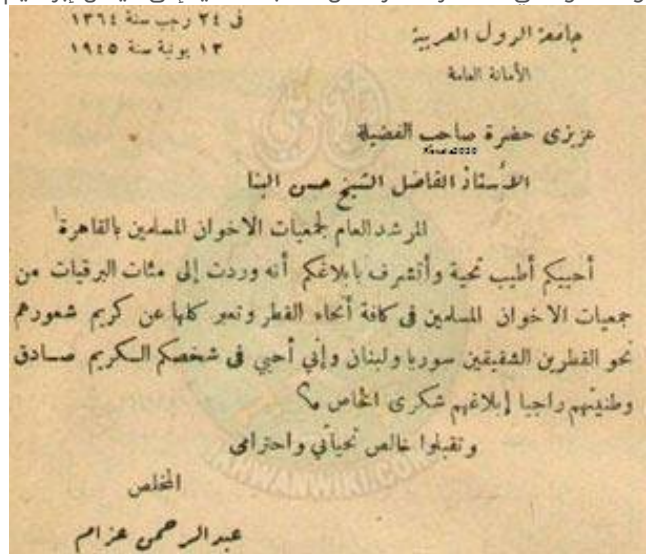 فى ٢٤ رجب سنة ١٣٦٤
١٣ يونية سنة ١٩٤٥
جامعة الدول العربية
الأمانة العامة
عزيزى حضرة صاحب الفضيلة
الأستاذ الفاضل الشيخ حسن البنا
المرشد العام لجمعيات الاخوان المسلمين بالقاهرة
أحييكم أطيب تحية وأتشرف بابلاغكم أنه وردت إلى مئات البرقيات من
جمعيات الاخوان المسلمين فى كافة أنحاء القطر وتعبر كلها عن كريم شعورهم
نحو القطرين الشقيقين سوريا ولبنان وإني أحيي فى شخصكم الكريم صادق
وطنيتهم راجيا إبلاغهم شكرى الخاص
وتقبلوا خالص تحياتي واحترامى
المخلص
عبد الرحمن عزام
IKHWANWIKI.COM